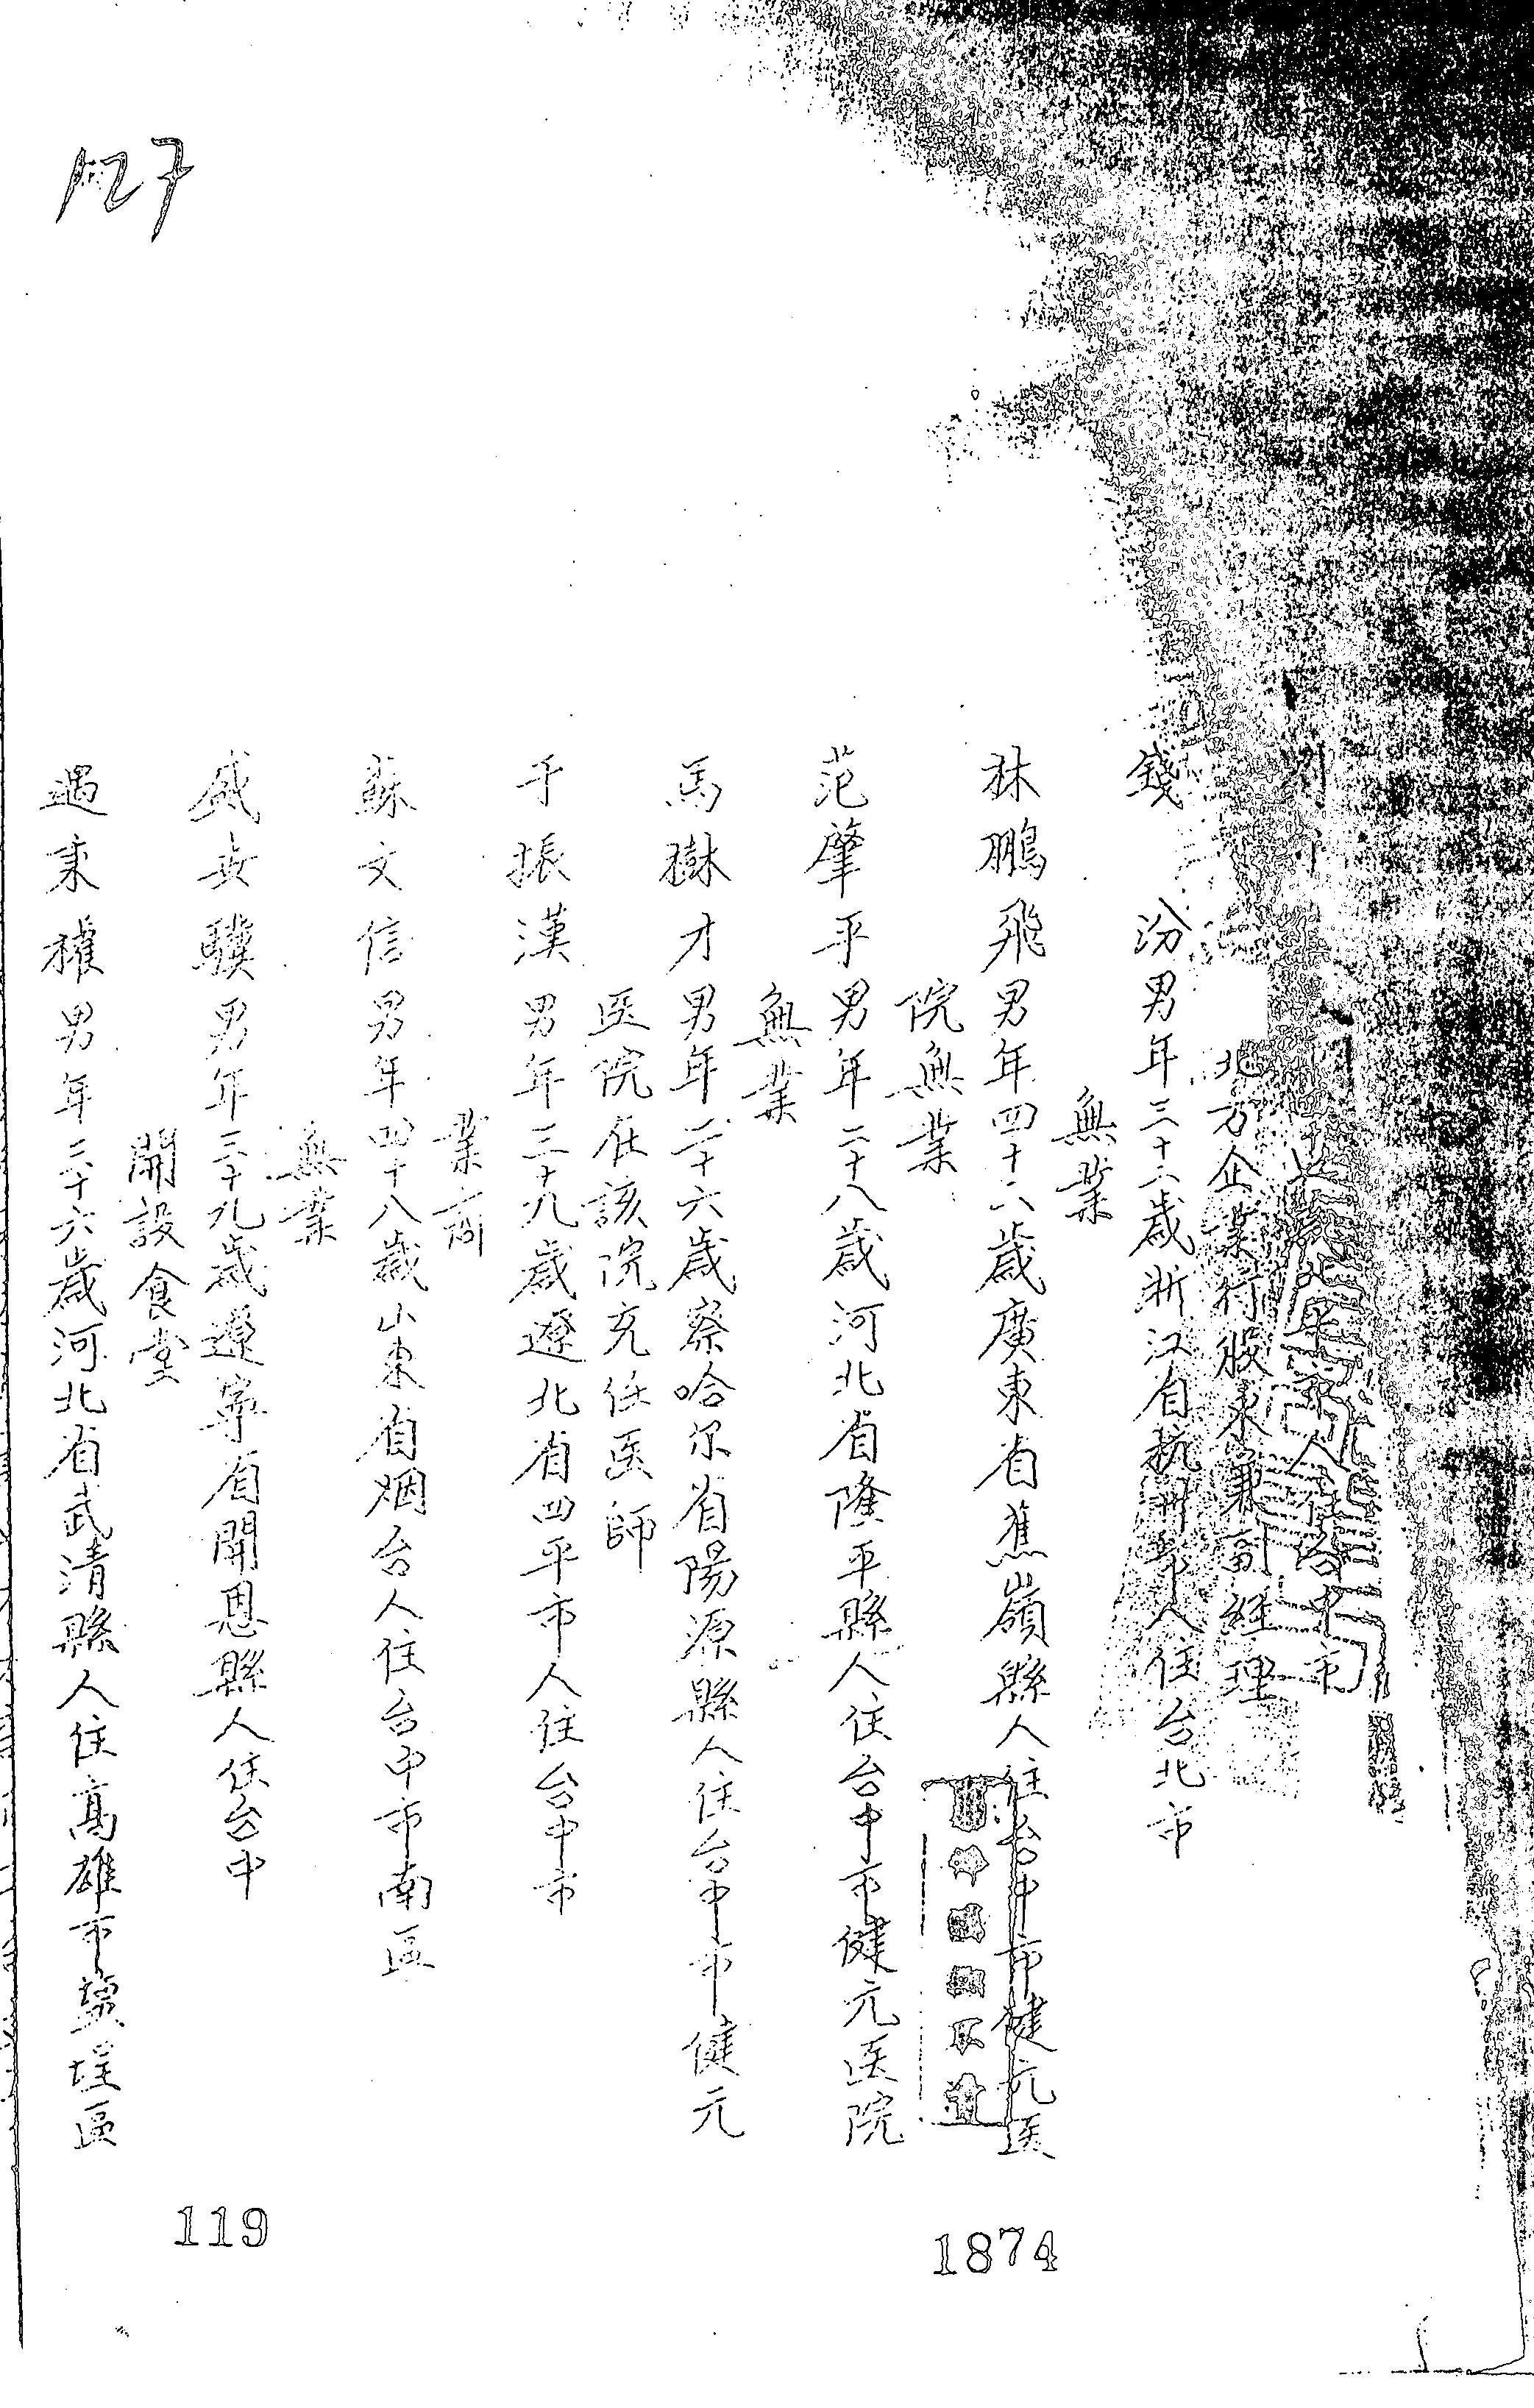 127
人住台中市
北方企業行股東兼副經理
錢汾男年三十六歲浙江省杭州市人住台北市
無業
林鵬飛男年四十六歲廣東省蕉嶺縣人住台中市健元医
院無業
范肇平男年二十八歲河北省隆平縣人住台中市健元医院
無業
馬樹才男年二十六歲察哈尔省陽源縣人住台中市健元
医院在該院充任医師
于振漢男年三十九歲遼北省四平市人住台中市
業商
蘇文信男年四十八歲山東省烟台人住台中市南區
無業
盛世驥男年三十九歲遼寧省開恩縣人住台中
開設食堂
過秉權男年三十六歲河北省武清縣人住高雄市鹽埕區
119
1874